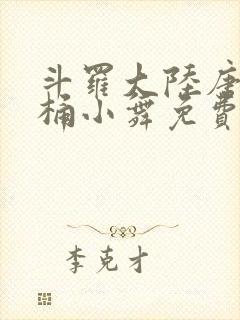 斗羅大陸唐
桶小舞免費
李克才